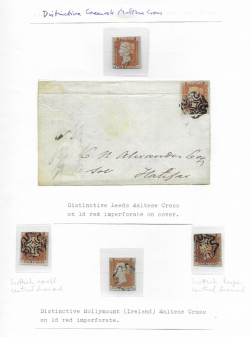 Distinctive Cancels Maltese Cross
C. N. Alexander Esq
Halifax
Distinctive Leeds Maltese Cross
on 1d red imperforate on cover.
Scottish small
central diamond
Scottish large
central diamond
Distinctive Hollymount (Ireland) Maltese Cross
on 1d red imperforate.